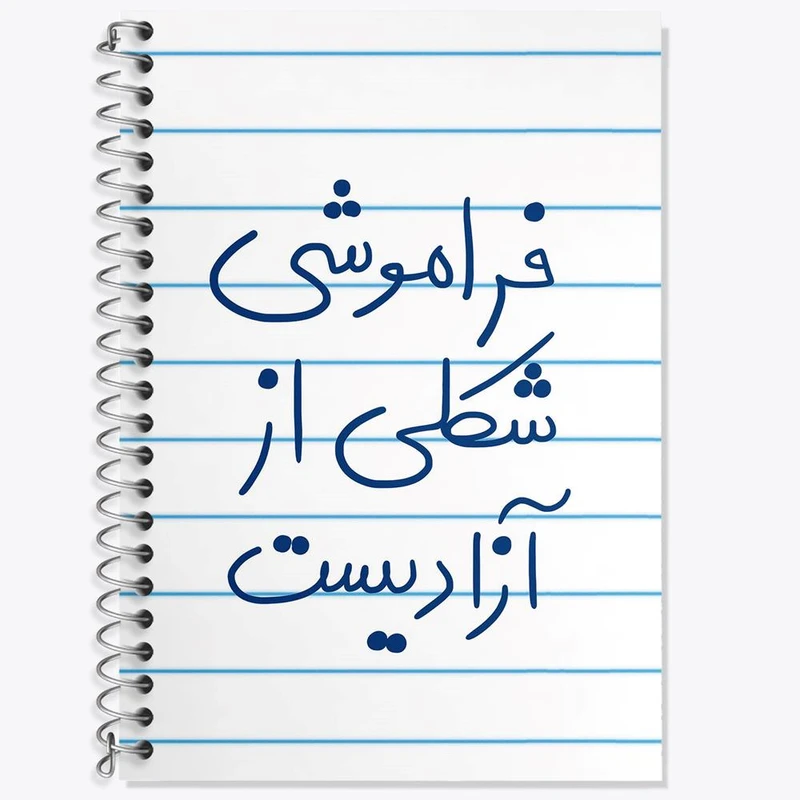 فراموشی
شکلی از
آزادیست